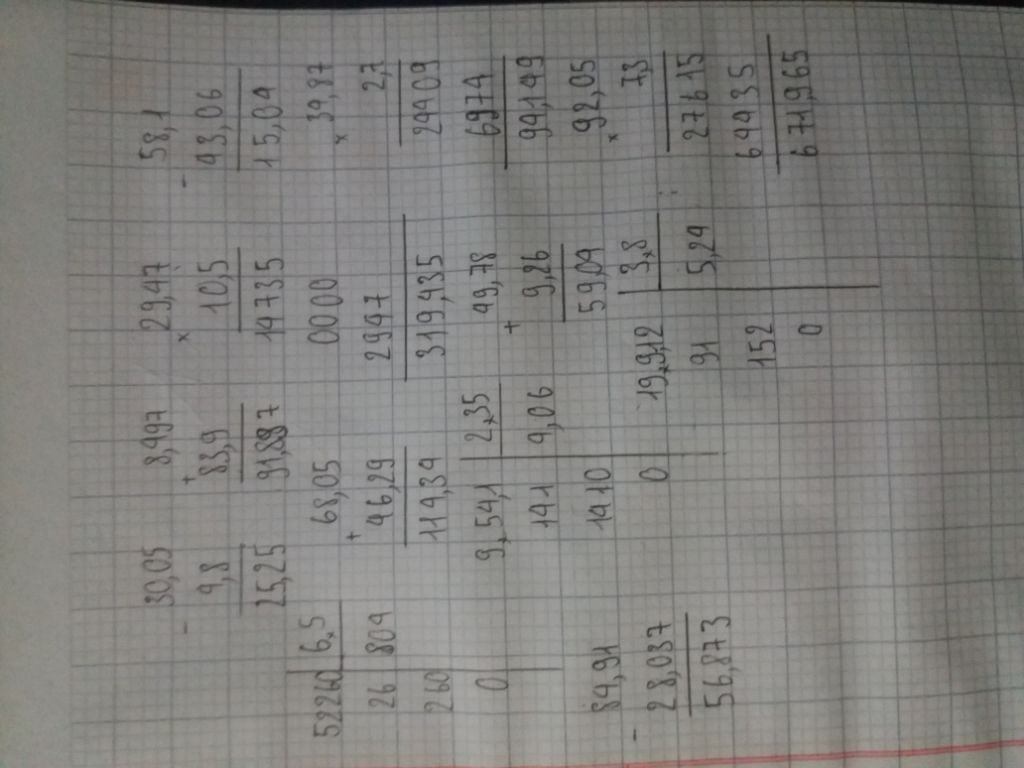 30,05 8,997 29,47 58,1
- + × -
4,8 83,9 10,5 43,06
25,25 91,887 14735 15,04
52260 6,5 68,05 0000 34,87
+ ×
26 804 46,29 2947 2,7
260 114,34 319,435 24409
0 9,54,1 2,35 49,78 6974
+
141 4,06 9,26 94,149
84,91 1410 59,04 92,05
- ×
28,037 0 19,912 3,8 7,3
56,873 91 5,24 27615
152 64435
0 671,965